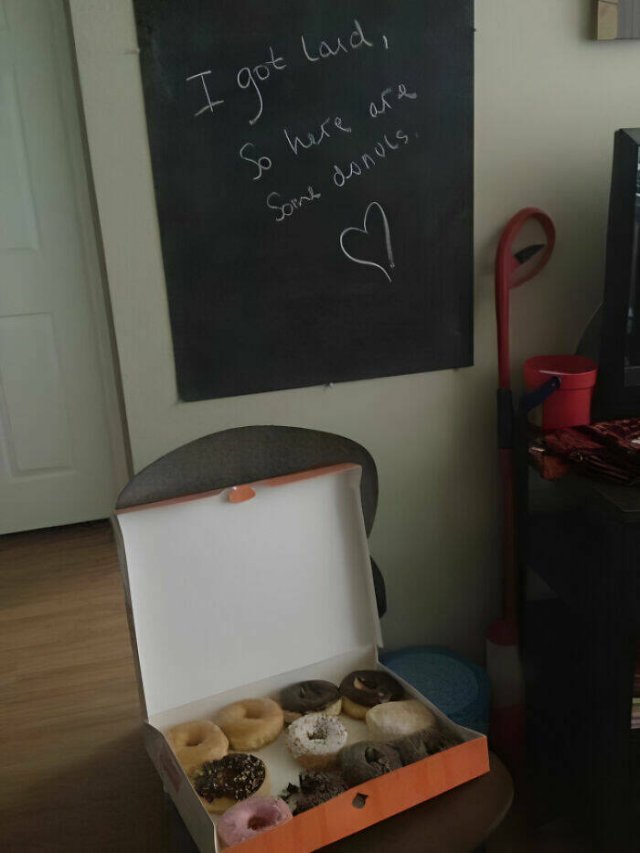 I got laid,
So here are
Some donuts.